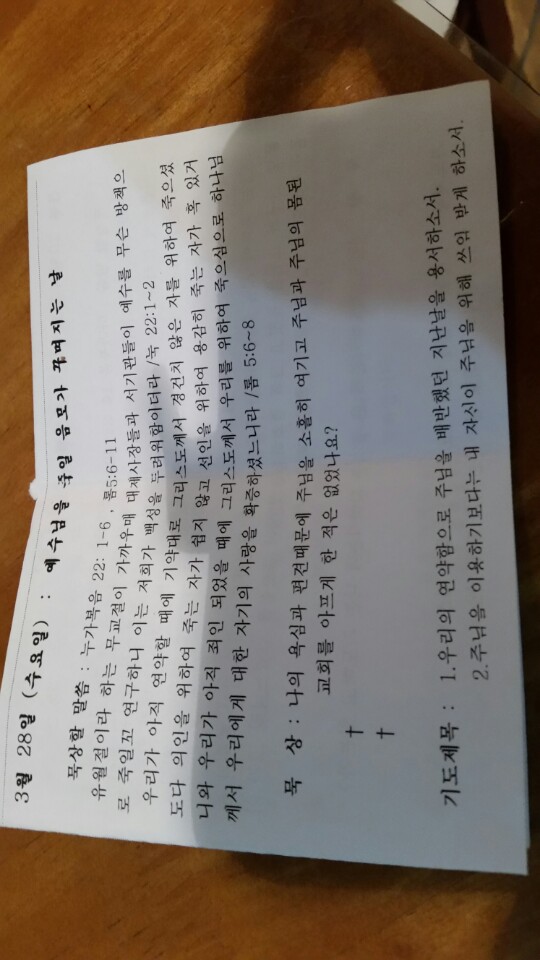 3월 28일 (수요일) : 예수님을 죽일 음모가 꾸며지는 날
묵상할 말씀 : 누가복음 22: 1-6 , 롬5:6-11
유월절이라 하는 무교절이 가까우매 대제사장들과 서기관들이 예수를 무슨 방책으
로 죽일꼬 연구하니 이는 저희가 백성을 두려워함이더라 /눅 22:1~2
우리가 아직 연약할 때에 기약대로 그리스도께서 경건치 않은 자를 위하여 죽으셨
도다 의인을 위하여 죽는 자가 쉽지 않고 선인을 위하여 용감히 죽는 자가 혹 있거
니와 우리가 아직 죄인 되었을 때에 그리스도께서 우리를 위하여 죽으심으로 하나님
께서 우리에게 대한 자기의 사랑을 확증하셨느니라 /롬 5:6~8
묵 상 : 나의 욕심과 편견때문에 주님을 소홀히 여기고 주님과 주님의 몸된
교회를 아프게 한 적은 없었나요?
†
†
기도제목 : 1.우리의 연약함으로 주님을 배반했던 지난날을 용서하소서.
2.주님을 이용하기보다는 내 자신이 주님을 위해 쓰임 받게 하소서.